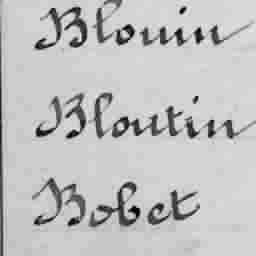 Blouin
Bloutin
Bobet